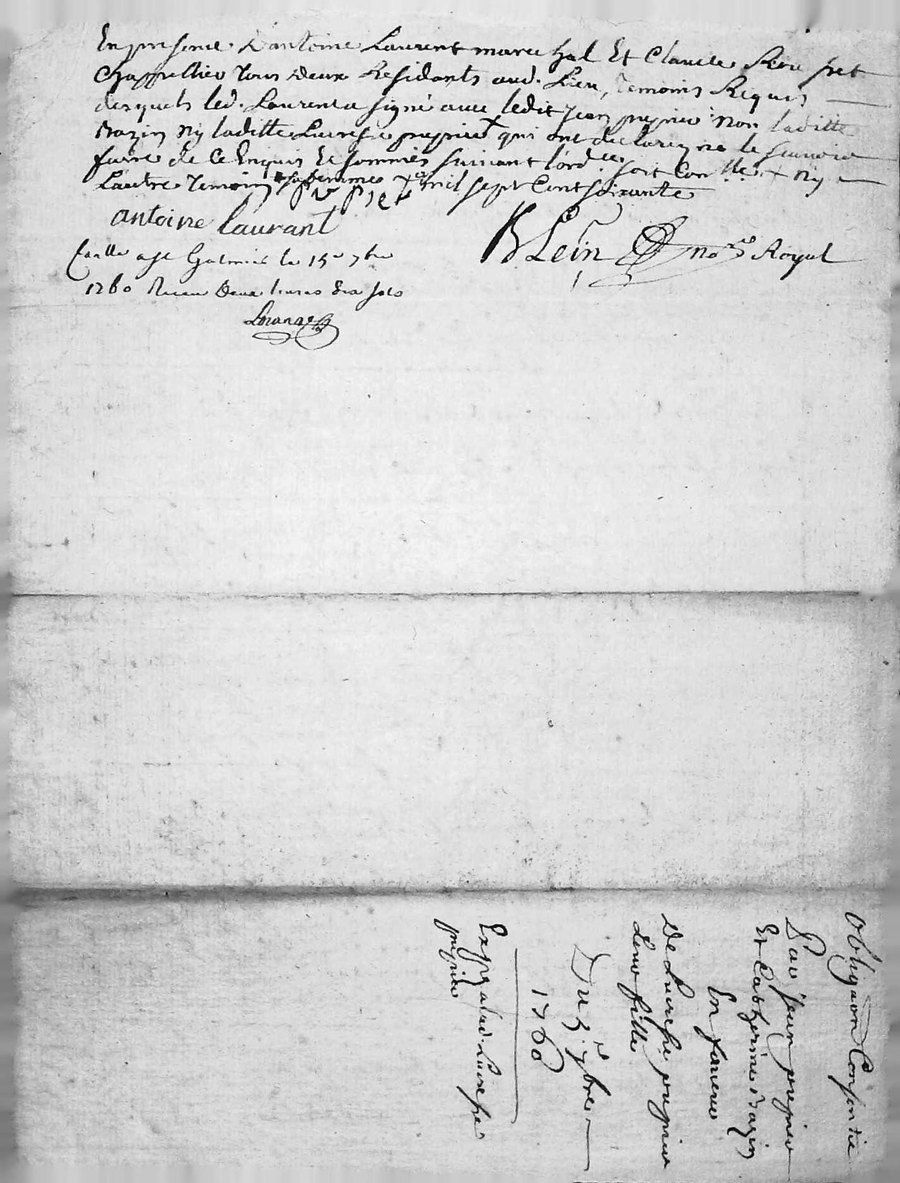 En presence d'antoine Laurent marechal Et Claude
Chappellier tous deux Residants aud. Lieu, temoins Requis
desquels led. Laurent a signé avec ledit Jean pupier non laditte
Bazin Ny laditte Lucresse pupier qui ont declaré ne le scavoir
faire de ce Enquis Et sommés suivant l'ord.ce soit Con.llé + Ny
L'autre temoin + sa femme mil sept Cent soixante
p v p i e r
antoine laurant
B Lein no.re Royal
Galmier le 15e 7bre
1760 Receu Deux livres
Obliga.on Consentie
Par Jean pupier
Et Catherine Bazin
En faveur
De Lucresse pupier
Leur fille
Du 5.e 7bre
1760
Exp. a lad. Lucresse
pupier